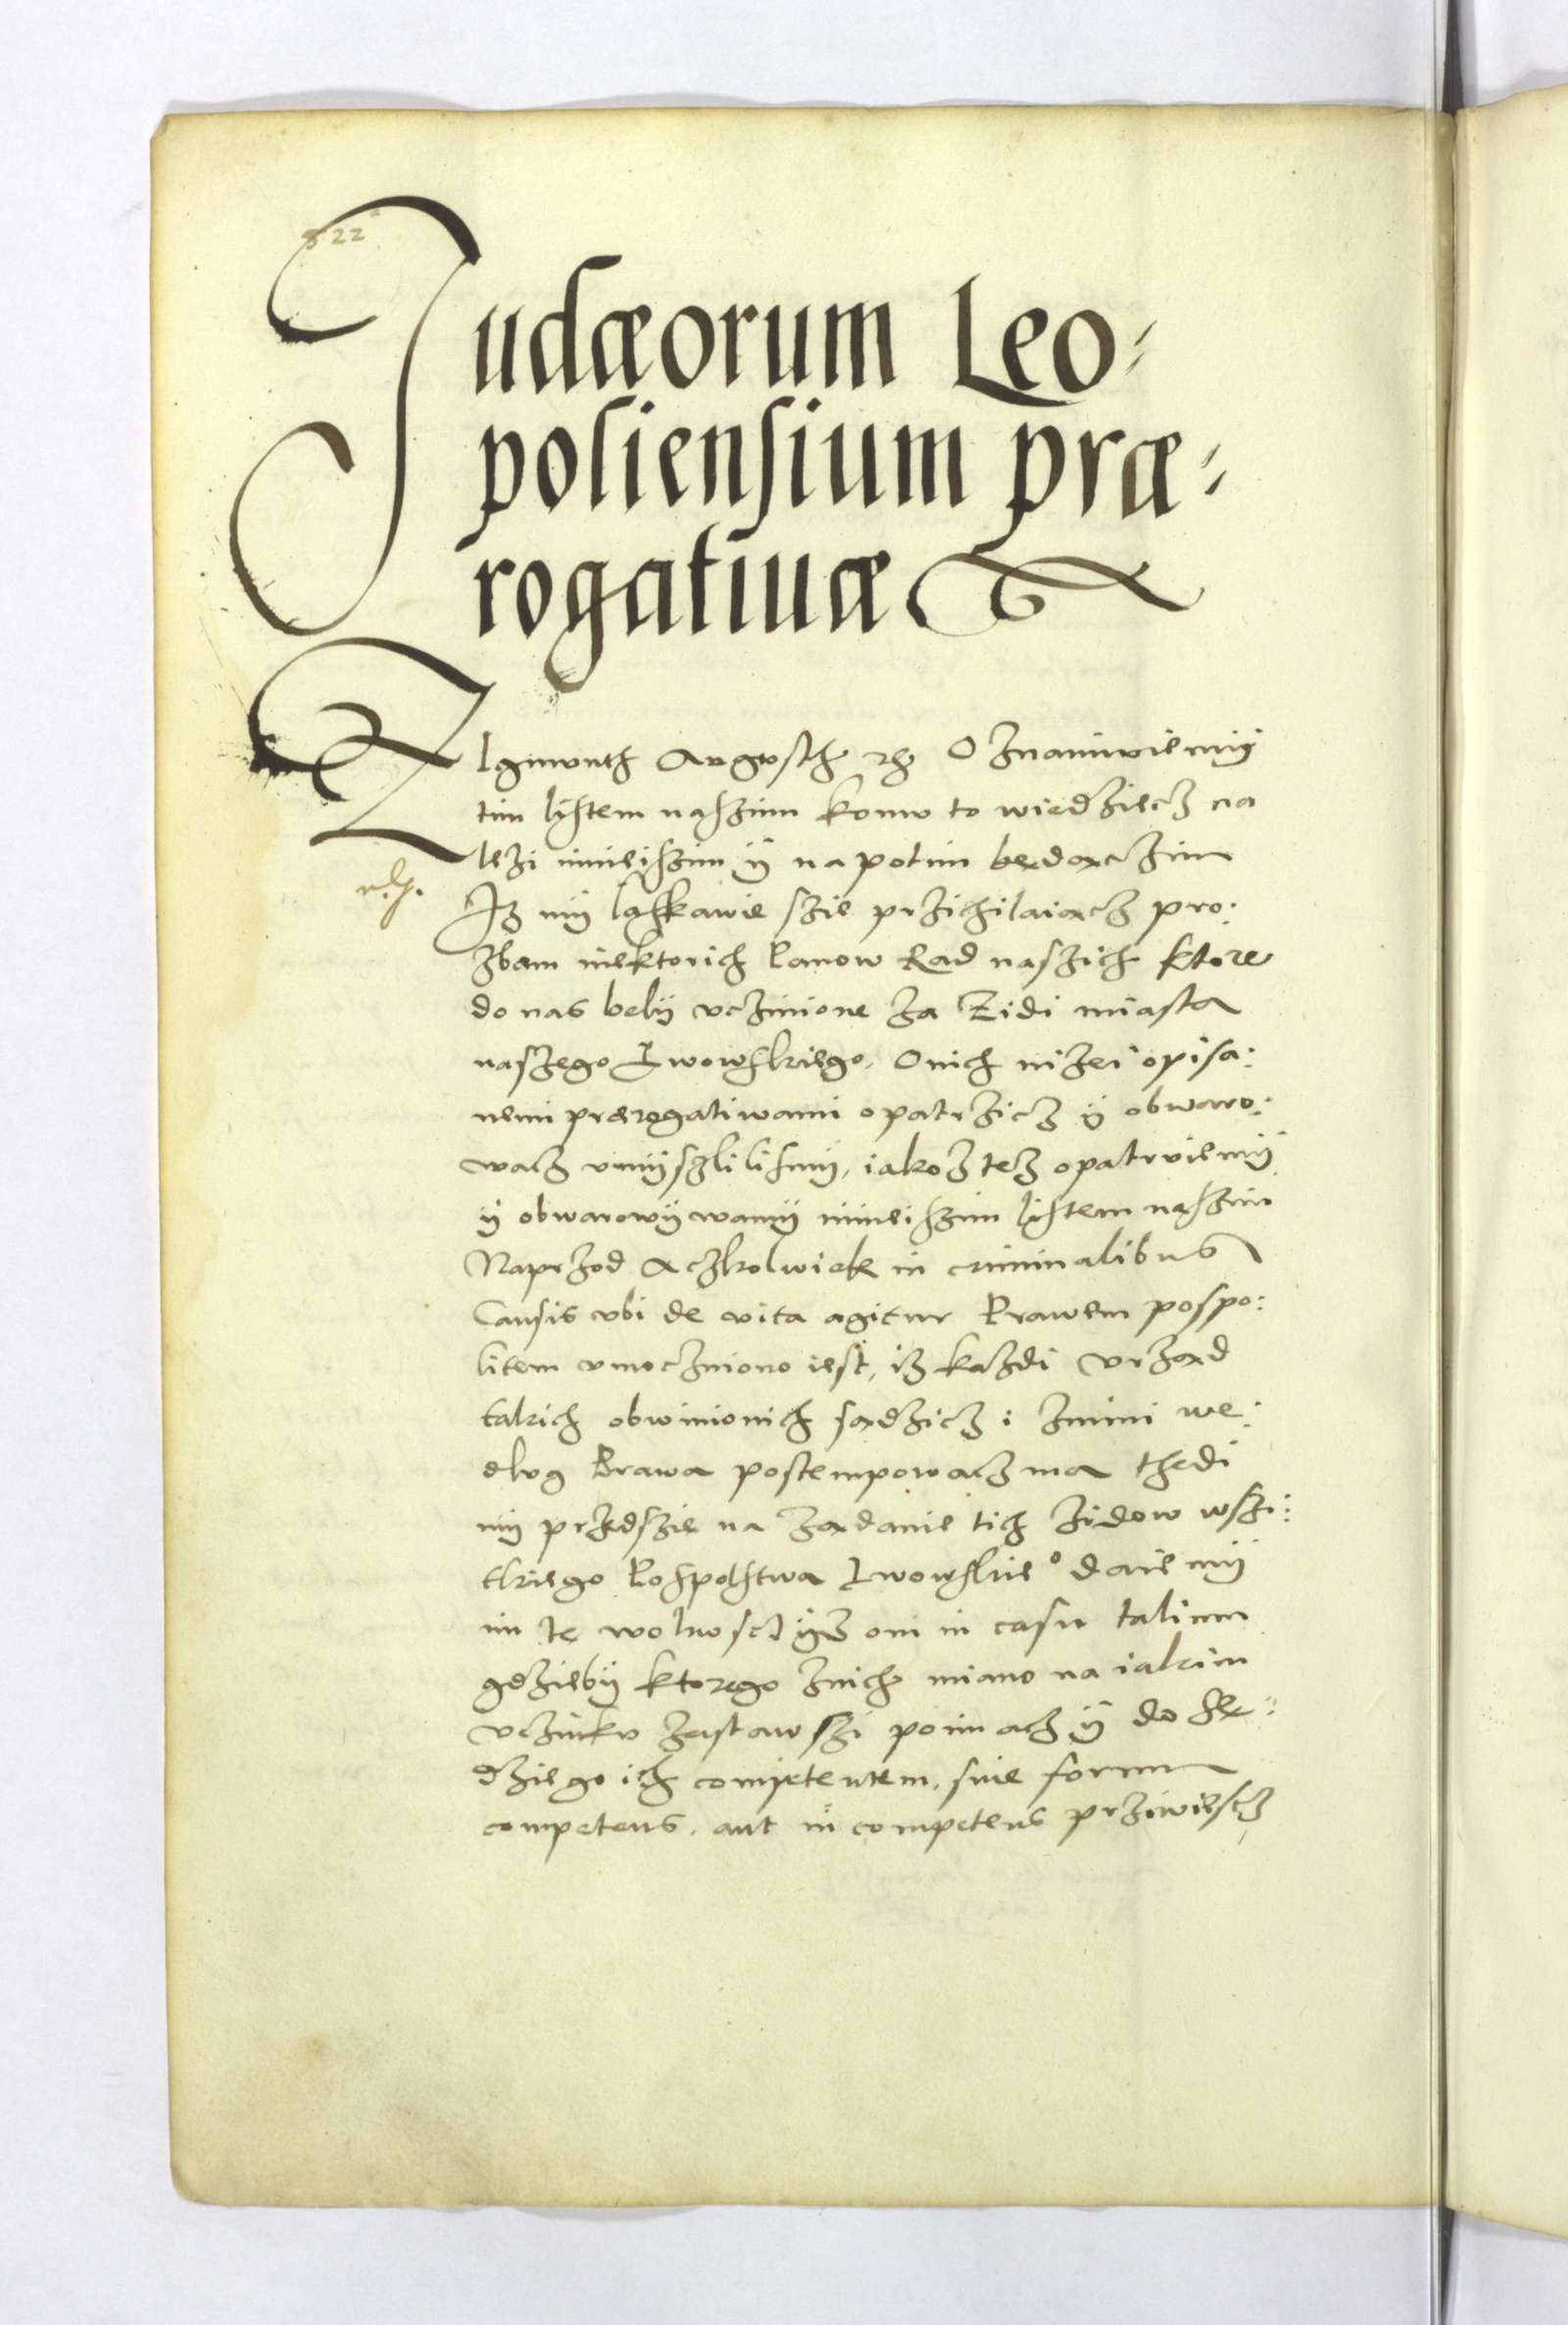 822
Judæorum Leo-
poliensium præ-
rogatiuæ
Zigmunth August etc Oznaimuiemÿ
tim listem naszim komu to wiedziecz na
lezi innieiszim ÿ napotim bedaczim
Iz mÿ laskawie szie przichilaiacz pro:
zbam niektorich Panow Rad naszich ktore
do nas belÿ uczinione za Zidi miasta
naszego Lwowskiego. Onich nizei opisa:
nemi prærogatiwami opatrzicz ÿ obwaro:
wacz umÿszlilismÿ, iakoz tez opatruiemÿ
ÿ obwarowÿwamÿ ninieiszim listem naszim
Naprzod Aczkolwiek in criminalibus
Causis vbi de vita agitur Prawem pospo:
litem umoczniono iest, iz kazdi vrzad
takich obwinionich sadzicz i znimi we:
dlug Prawa postempowacz ma thedi
mÿ przedszie na zadanie tich zidow wszi:
tkiego Pospolstwa Lwowskie° daiemÿ
im te wolnoscz ÿz oni in casu talium
gdziebÿ ktorego znich miano na iakim
vczinku zastawszi poimacz ÿ do Se:
dziego ich competentem, siue forum
competens. aut incompetens prziwiescz